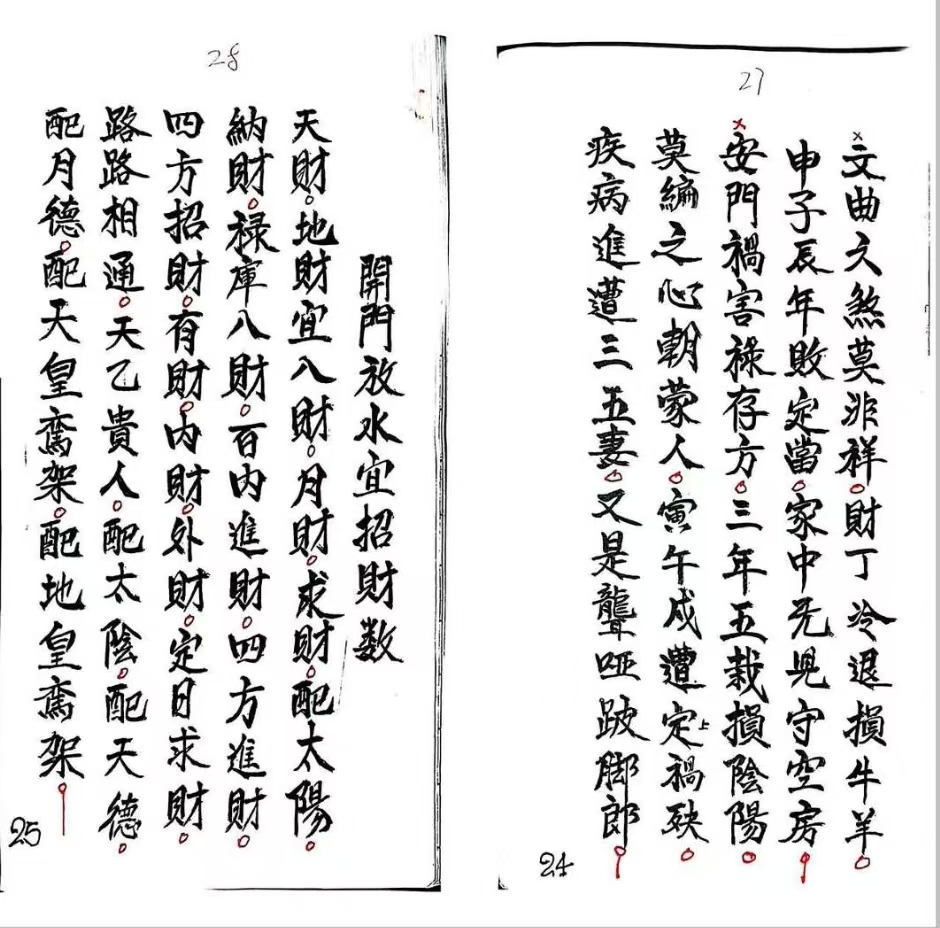 27
文曲文煞莫非祥。財丁冷退損牛羊。
申子辰年敗定當。家中无児守空房。
安門禍害祿存方。三年五栽損陰陽。
莫編之心朝蒙人。寅午戍遭定上禍殃。
疾病進遭三五妻。又是聾啞跛脚郎。
24
28
開門放水宜招財数
天財。地財宜八財。月財。求財。配太陽。
納財。禄庫八財。百内進財。四方進財。
四方招財。有財。内財。外財。定日求財。
路路相通。天乙貴人。配太陰。配天德。
配月德。配天皇鸾架。配地皇鸾架。
25